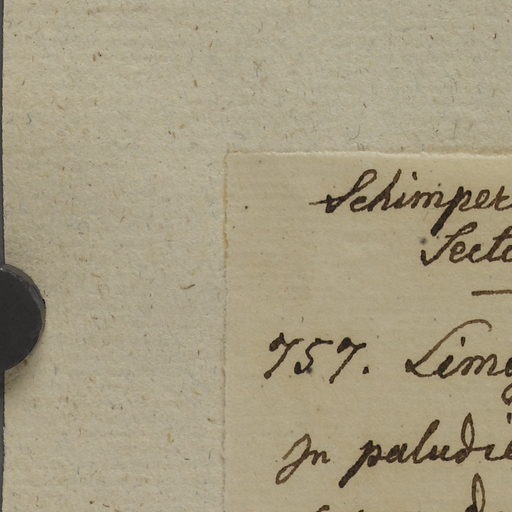 Schimper
Secto
757. Limo
In paludi